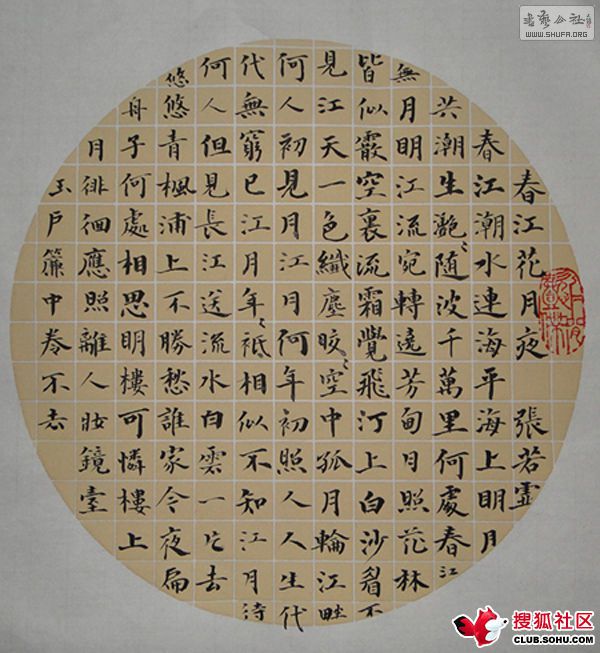 書藝公社
WWW.SHUFA.ORG
春江花月夜 張若虛
春江潮水連海平海上明月
共潮生灔〻隨波千萬里何處春江
無月明江流宛轉遶芳甸月照花林
皆似霰空裏流霜覺飛汀上白沙看不
見江天一色纖塵皎〻空中孤月輪江畔
何人初見月江月何年初照人人生代
代無窮已江月年〻祇相似不知江月待
何人但見長江送流水白雲一片去
悠悠青楓浦上不勝愁誰家今夜扁
舟子何處相思明樓可憐樓上
月徘徊應照離人妝鏡臺
玉戶簾中卷不去
搜狐社区
CLUB.SOHU.COM